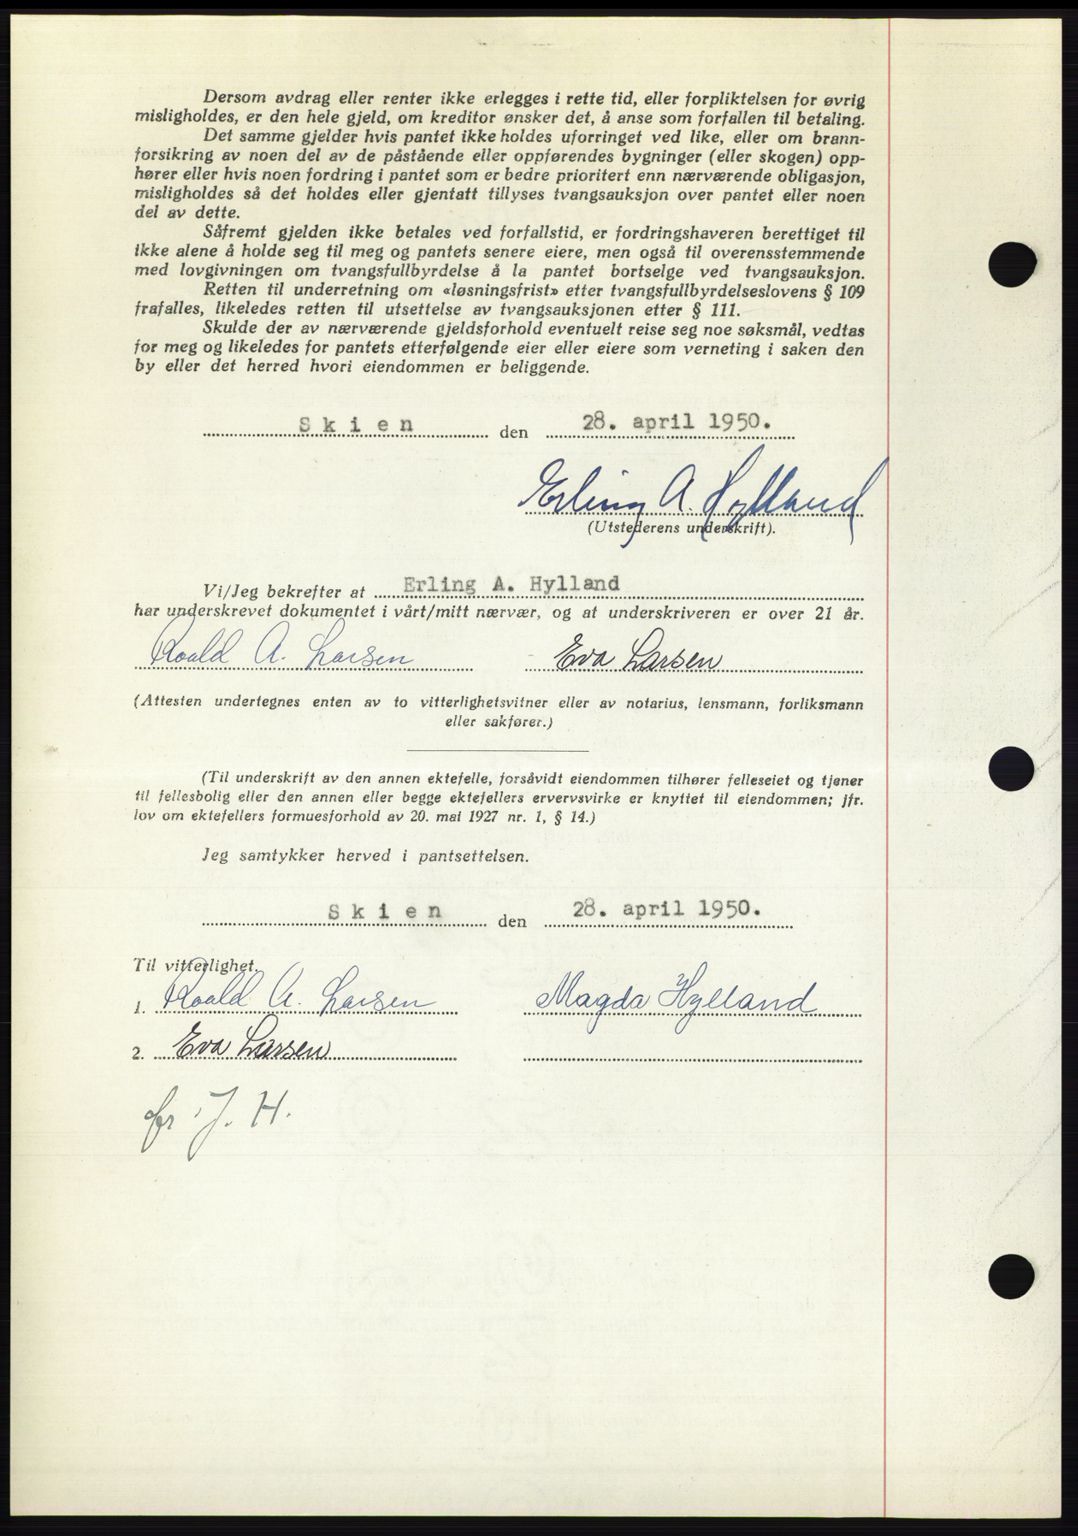 Dersom avdrag eller renter ikke erlegges i rette tid, eller forpliktelsen for øvrig
misligholdes, er den hele gjeld, om kreditor ønsker det, å anse som forfallen til betaling.
Det samme gjelder hvis pantet ikke holdes uforringet ved like, eller om brann-
forsikring av noen del av de påstående eller oppførendes bygninger (eller skogen) opp-
hører eller hvis noen fordring i pantet som er bedre prioritert enn nærværende obligasjon,
misligholdes så det holdes eller gjentatt tillyses tvangsauksjon over pantet eller noen
del av dette.
Såfremt gjelden ikke betales ved forfallstid, er fordringshaveren berettiget til
ikke alene å holde seg til meg og pantets senere eiere, men også til overensstemmende
med lovgivningen om tvangsfullbyrdelse å la pantet bortselge ved tvangsauksjon.
Retten til underretning om «løsningsfrist» etter tvangsfullbyrdelseslovens § 109
frafalles, likeledes retten til utsettelse av tvangsauksjonen etter § 111.
Skulde der av nærværende gjeldsforhold eventuelt reise seg noe søksmål, vedtas
for meg og likeledes for pantets etterfølgende eier eller eiere som verneting i saken den
by eller det herred hvori eiendommen er beliggende.
Skien den 28. april 1950.
Erling A. Hylland
(Utstederens underskrift).
Vi/Jeg bekrefter at Erling A. Hylland
har underskrevet dokumentet i vårt/mitt nærvær, og at underskriveren er over 21 år.
Roald A. Larsen Eva Larsen
(Attesten undertegnes enten av to vitterlighetsvitner eller av notarius, lensmann, forliksmann
eller sakfører.)
(Til underskrift av den annen ektefelle, forsåvidt eiendommen tilhører felleseiet og tjener
til fellesbolig eller den annen eller begge ektefellers ervervsvirke er knyttet til eiendommen; jfr.
lov om ektefellers formuesforhold av 20. mai 1927 nr. 1, § 14.)
Jeg samtykker herved i pantsettelsen.
Skien den 28. april 1950.
Til vitterlighet.
1. Roald A. Larsen Magda Hylland
2. Eva Larsen
J. H.